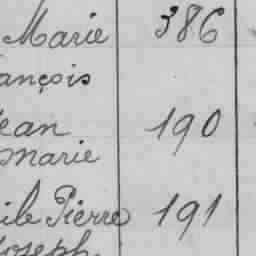 Marie 386
ançois
ean 190
marie
ile Pierre 191
Joseph